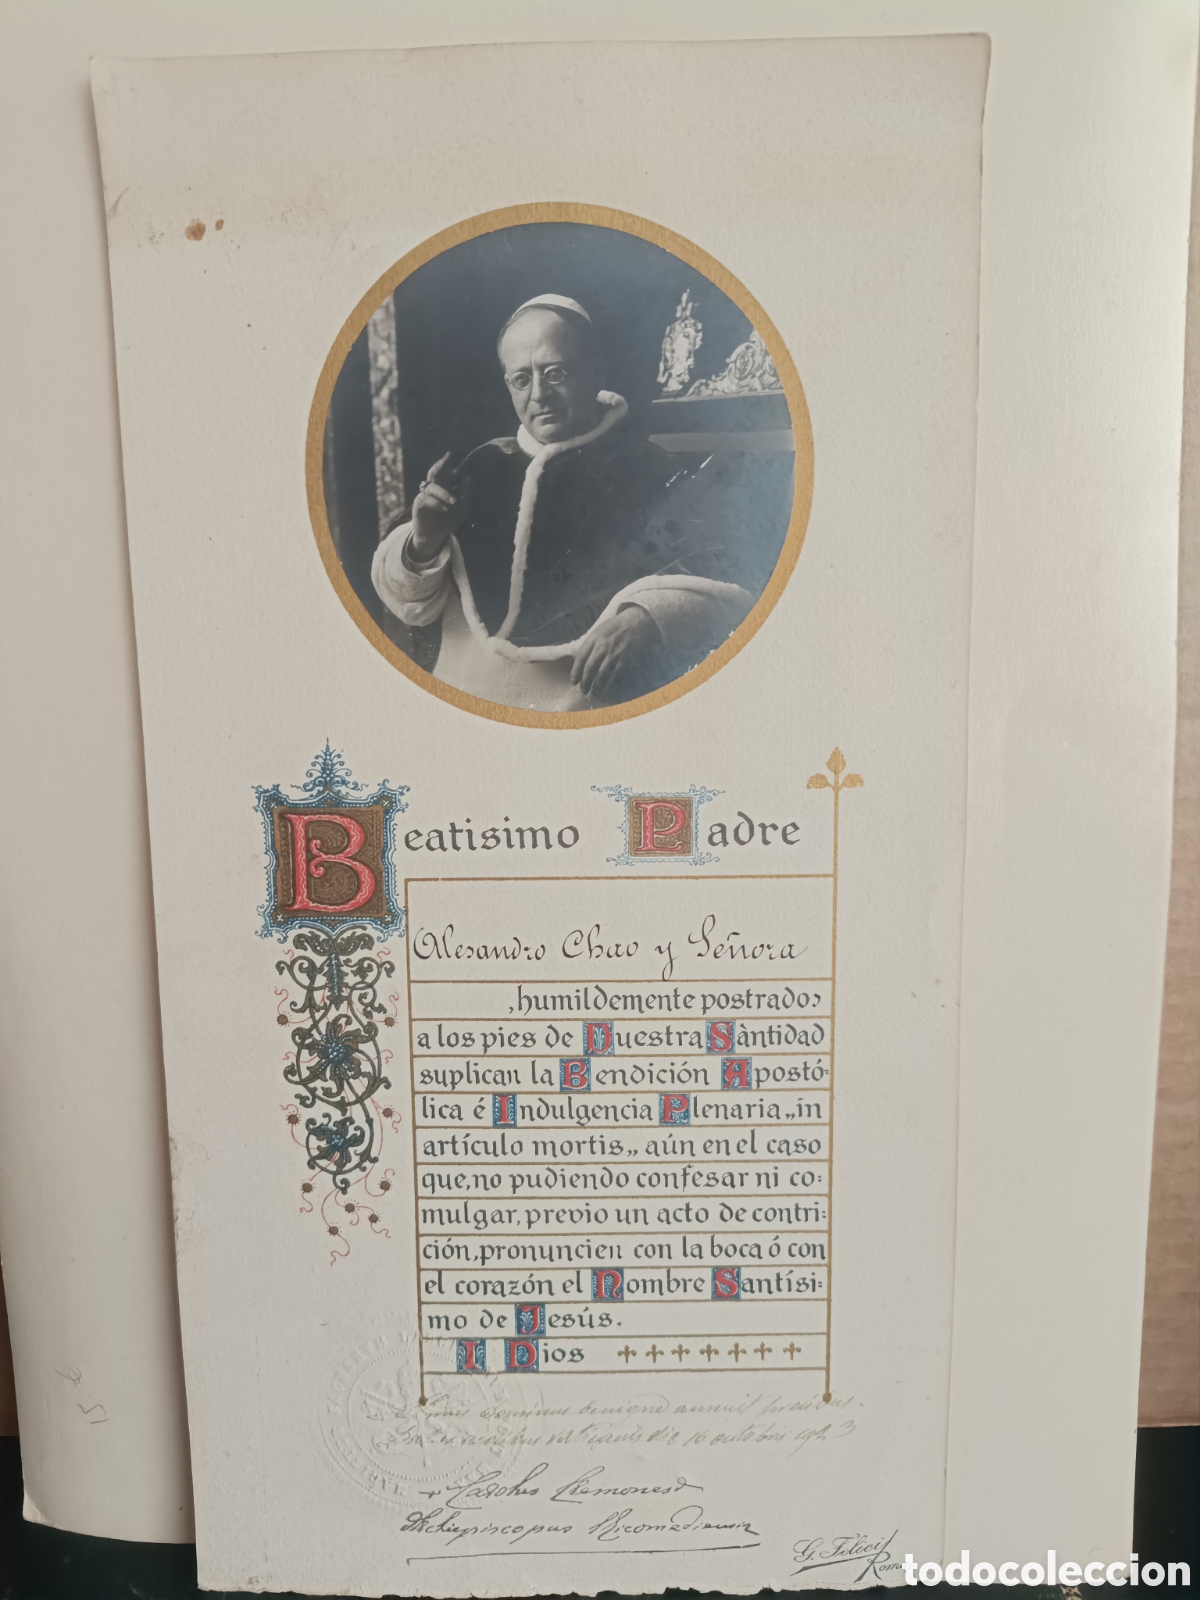 Beatisimo Padre
Alesandro Chao y Señora
,humildemente postrados
a los pies de Nuestra Sàntidad
suplican la Bendición Apostó-
lica é Indulgencia Plenaria „in
artículo mortis„ aún en el caso
que, no pudiendo confesar ni co-
mulgar, previo un acto de contri-
ción, pronuncien con la boca ó con
el corazón el Nombre Santísi-
mo de Jesús.
I Dios
Dominus benigne annuit precibus.
die 16 octobris 1923
+ Carolus Cremonesi
Archiepiscopus Nicomediensis
G. Felici
Roma
15 €
todocoleccion